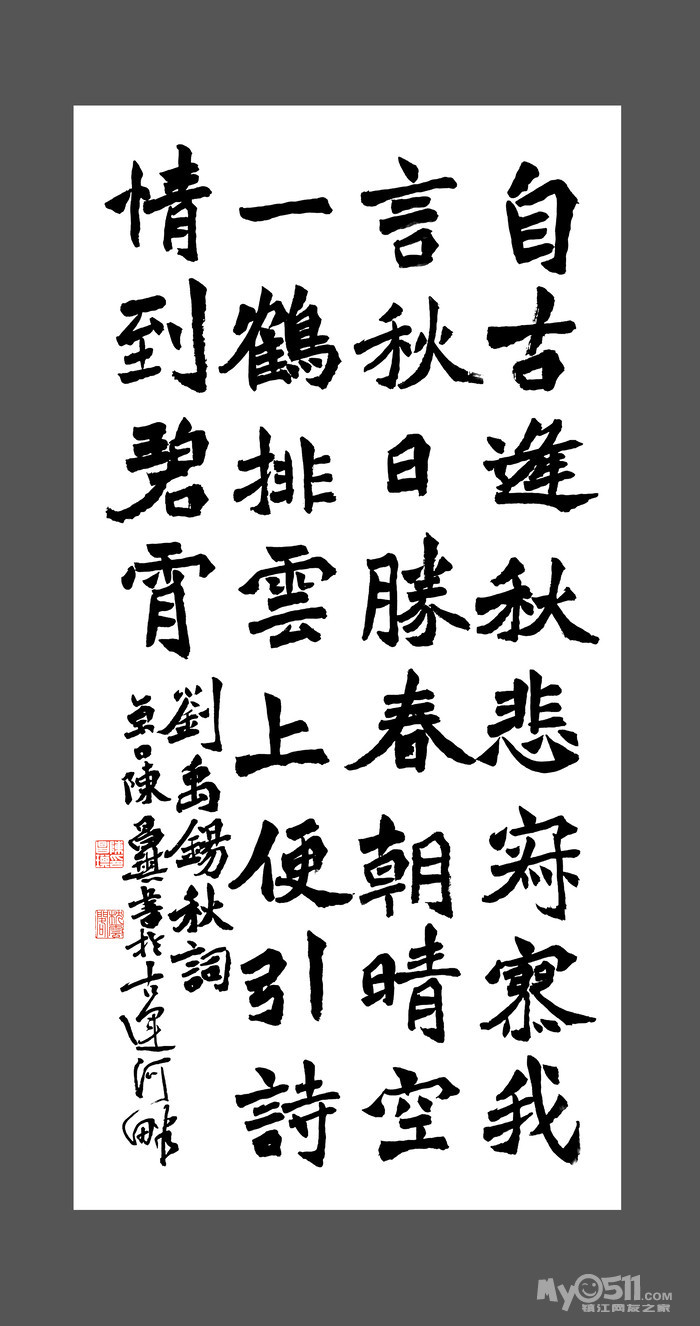 自古逢秋悲寂寥我
言秋日勝春朝晴空
一鶴排雲上便引詩
情到碧霄
劉禹錫秋詞
京口陳昌書於古運河畔
My0511.COM
镇江网友之家